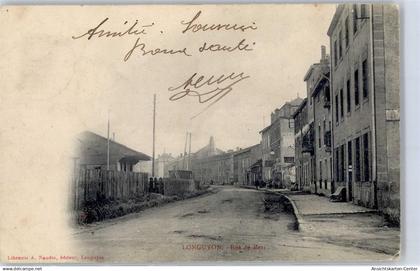 Amitié. Souvenir
Bonne santé
LONGUYON. - Rue de Metz
Librairie A. Naudin, éditeur, Longuyon
www.Ansichtskarten-Center.de